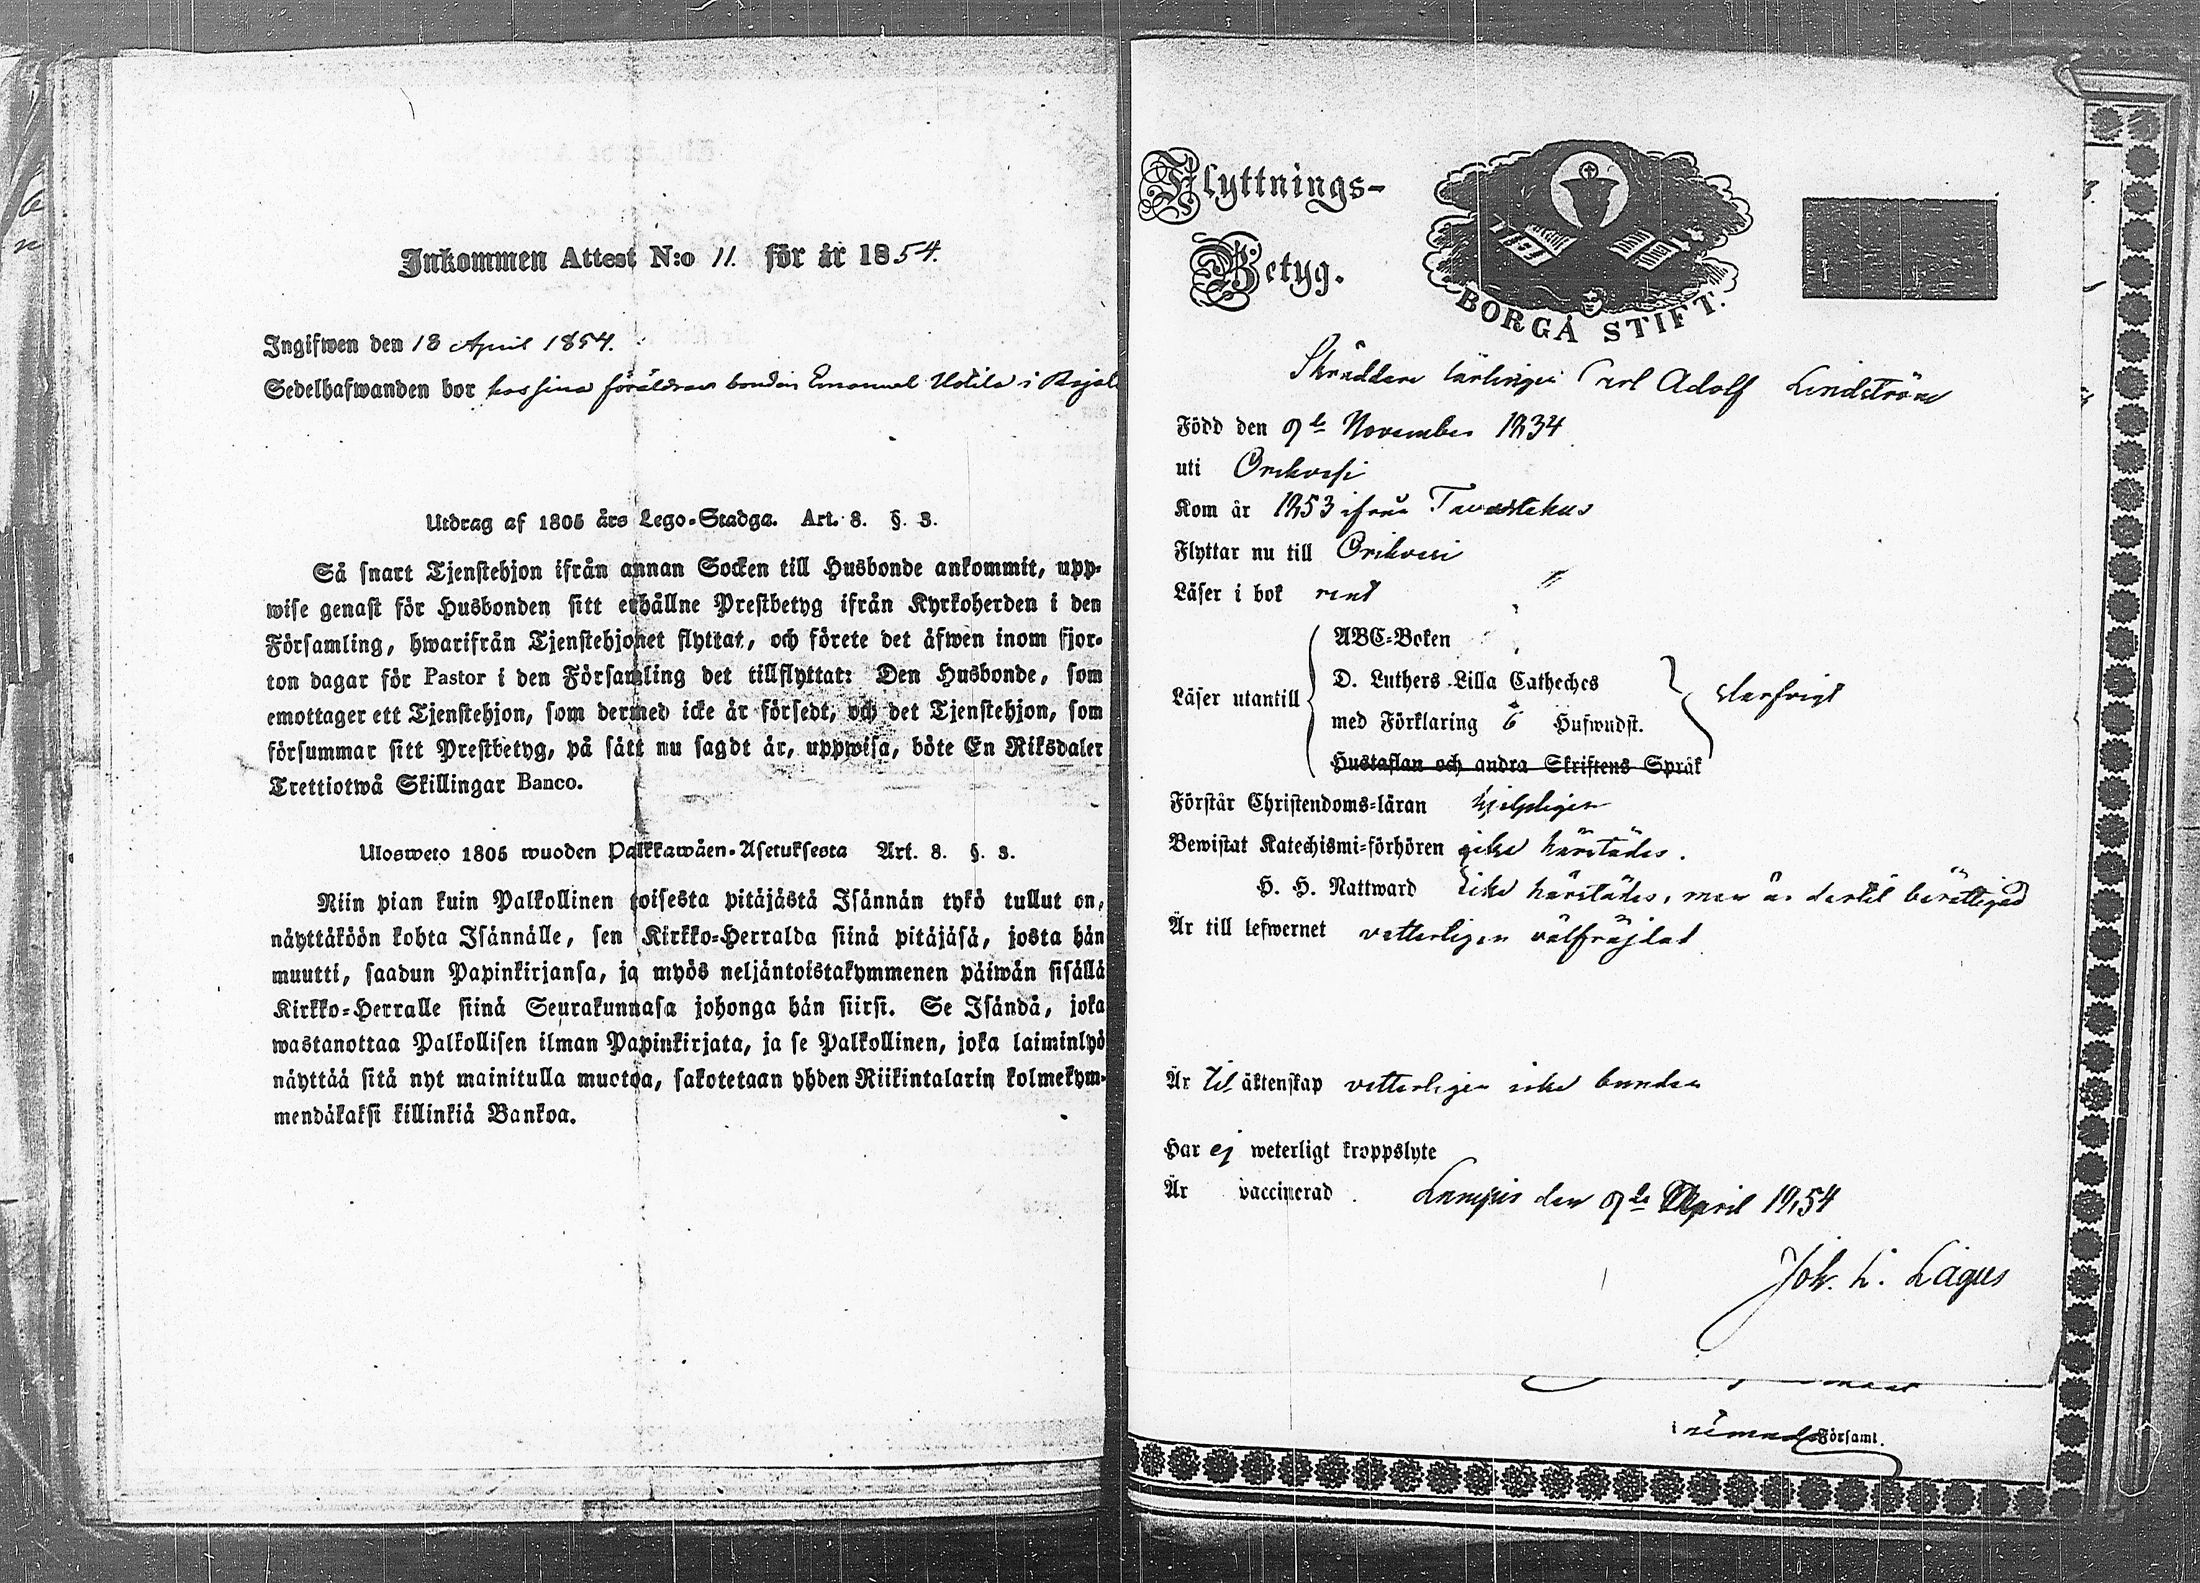 Inkommen Attest N:o 11. för år 1854.
Ingifwen den 18 April 1854.
Sedelhafwanden bor hos sina föräldrar bonden Emanuel Uotila i
Utdrag af 1805 års Lego-Stadga. Art. 8. §. 3.
Så snart Tjenstehjon ifrån annan Socken till Husbonde ankommit, upp-
wise genast för Husbonden sitt erhållne Prestbetyg ifrån Kyrkoherden i den
Församling, hwarifrån Tjenstehjonet flyttat, och förete det äfwen inom fjor-
ton dagar för Pastor i den Församling det tillflyttat: Den Husbonde, som
emottager ett Tjenstehjon, som dermed icke är försedt, och det Tjenstehjon, som
försummar sitt Prestbetyg, på sätt nu sagdt är, uppwisa, böte En Riksdaler
Trettiotwå Skillingar Banco.
Ulosweto 1805 wuoden Palkkawäen-Asetuksesta Art. 8. §. 3.
Niin pian kuin Palkollinen toisesta pitäjästä Isännän tykö tullut on,
näyttäköön kohta Isännälle, sen Kirkko-Herralda siinä pitäjäsä, josta hän
muutti, saadun Papinkirjansa, ja myös neljäntoistakymmenen päiwän sisällä
Kirkko-Herralle siinä Seurakunnasa johonga hän siirsi. Se Isändä, joka
wastanottaa Palkollisen ilman Papinkirjata, ja se Palkollinen, joka laiminlyö
näyttää sitä nyt mainitulla muotoa, sakotetaan yhden Riikintalarin kolmekym-
mendäkaksi killinkiä Bankoa.
Flyttnings-
Betyg.
BORGÅ STIFT.
Skräddare lärlingen Carl Adolf Lindström
Född den 9de November 1834
uti Orihvesi
Kom år 1853 ifrån Tavastehus
Flyttar nu till Orihvesi
Läser i bok rent
Läser utantill
ABC-Boken
D. Luthers Lilla Catheches
med Förklaring 6 Hufwudst.
Hustaflan och andra Skriftens Språk
Förstår Christendoms-läran hjelpligen
Bewistat Katechismi-förhören icke härstädes.
H. H. Nattward icke härstädes, men är dertil berättigad
Är till lefwernet vetterligen välfräjdad
Är til äktenskap vetterligen icke bunden
Har ej weterligt kroppslyte
Är vaccinerad. Lampis den 9de April 1854
Joh. L. Lagus
Församl.